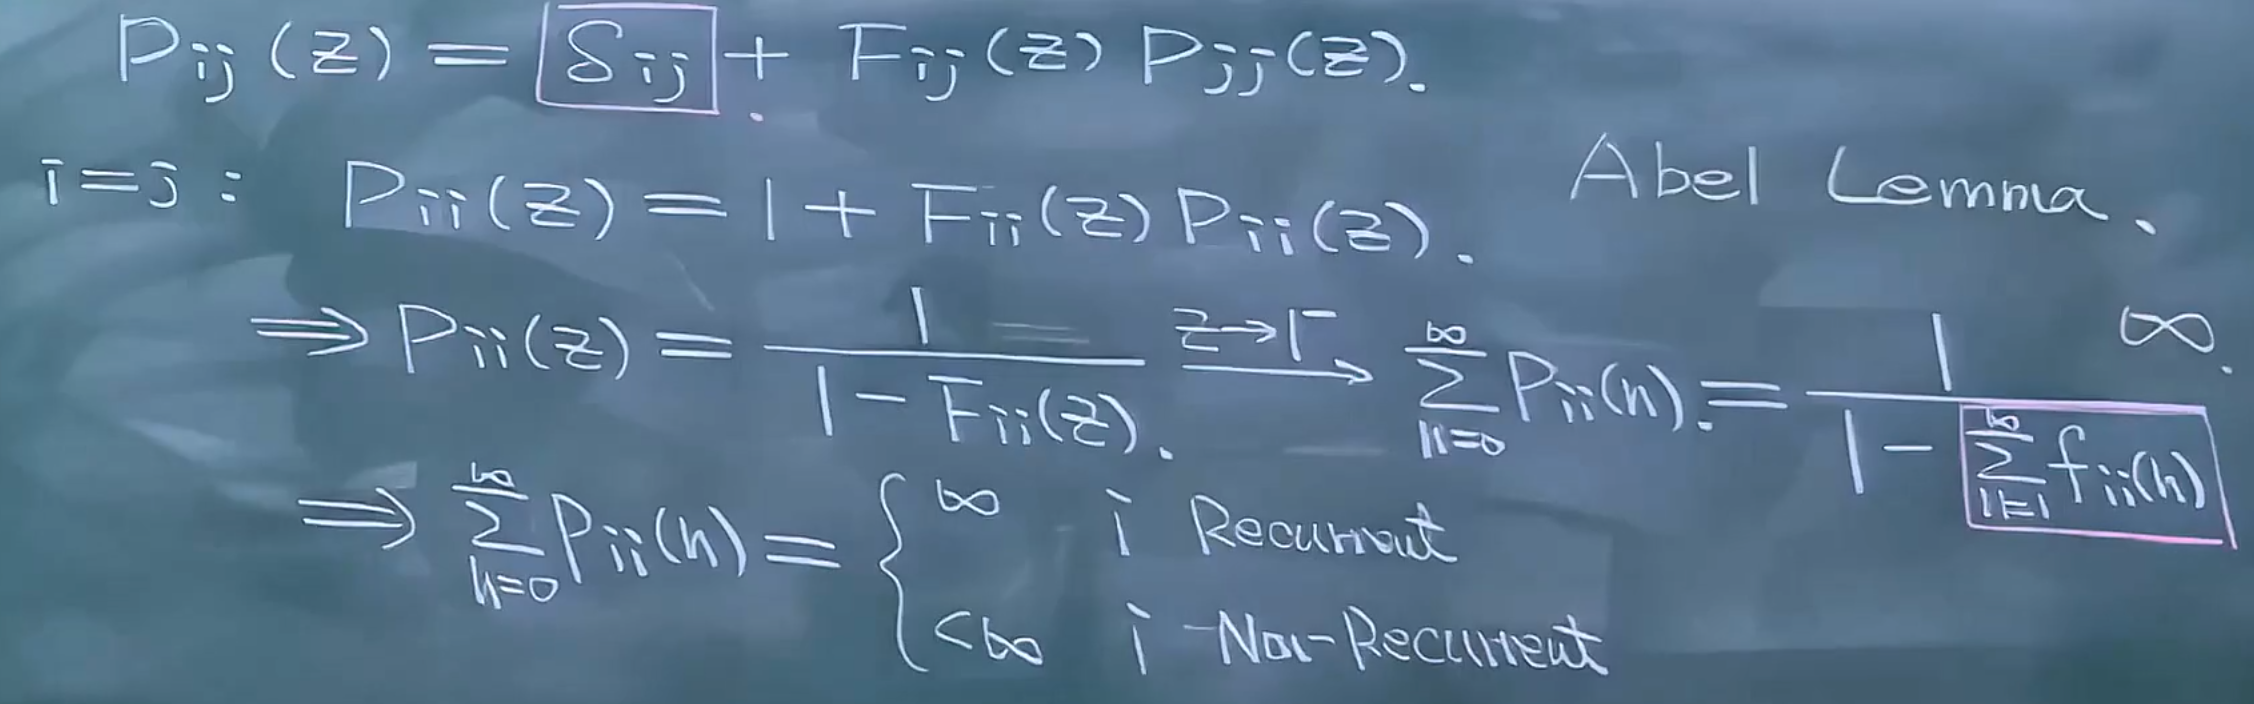 P_ij(z) = δ_ij + F_ij(z) P_jj(z).
Abel Lemma.
i=j: P_ii(z) = 1 + F_ii(z) P_ii(z).
⇒ P_ii(z) = 1 / (1 - F_ii(z)). —z→1⁻→ ∑_{n=0}^{∞} P_ii(n). = 1 / (1 - ∑_{n=1}^{∞} f_ii(n)) ∞.
⇒ ∑_{n=0}^{∞} P_ii(n) = { ∞ i Recurrent
<∞ i -Non-Recurrent